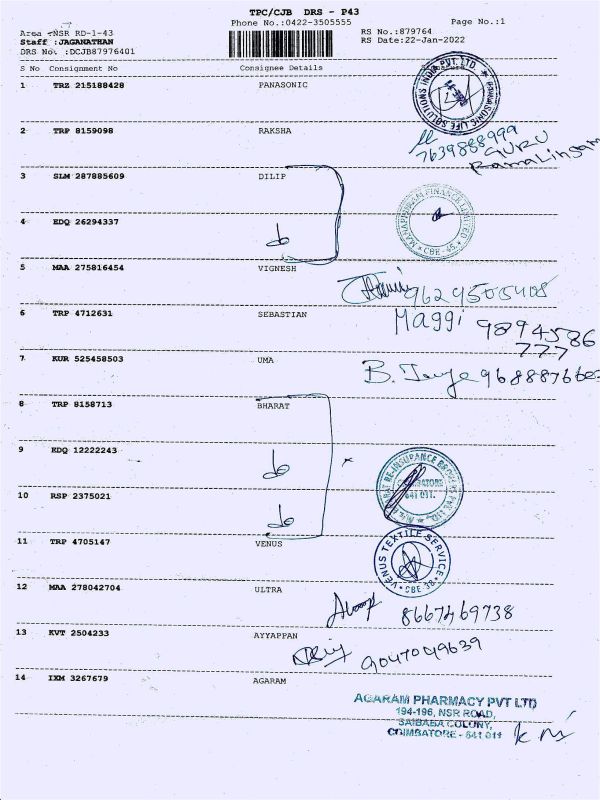 TPC/CJB DRS - P43
Phone No.:0422-3505555
Page No.:1
Area -NSR RD-1-43
RS No.:879764
Staff : JAGANATHAN
RS Date:22-Jan-2022
DRS No. :DCJB87976401
S No Consignment No Consignee Details
1 TRZ 215188428 PANASONIC
PANASONIC LIFE SOLUTIONS INDIA PVT. LTD.
2 TRP 8159098 RAKSHA
7639888999
GURU
Ramalingam
3 SLM 287885609 DILIP
4 EDQ 26294337 do
MANAPPURAM FINANCE LIMITED
CBE-45
5 MAA 275816454 VIGNESH
9629505408
6 TRP 4712631 SEBASTIAN
Maggi 9894586
777
7 KUR 525458503 UMA
B.
8 TRP 8158713 BHARAT
9 EDQ 12222243 do
10 RSP 2375021 do
BHARAT RE-INSURANCE BROKERS PVT. LTD.
COIMBATORE
641 011.
11 TRP 4705147 VENUS
VENUS TEXTILE SERVICE
CBE-38
12 MAA 278042704 ULTRA
8667469738
13 KVT 2504233 AYYAPPAN
9047049639
14 IXM 3267679 AGARAM
AGARAM PHARMACY PVT LTD
194-196, NSR ROAD,
SAIBABA COLONY,
COIMBATORE - 641 011